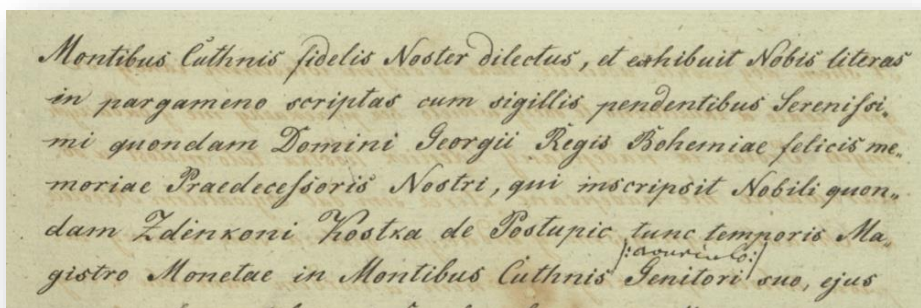 Montibus Cuthnis fidelis Noster dilectus, et exhibuit Nobis literas
in pargameno scriptas cum sigillis pendentibus Serenissi„
mi quondam Domini Georgii Regis Bohemiae felicis me„
moriae Praedecessoris Nostri, qui inscripsit Nobili quon„
dam Zdenkoni Kostka de Postupic tunc temporis Ma„
gistro Monetae in Montibus Cuthnis Genitori suo, ejus